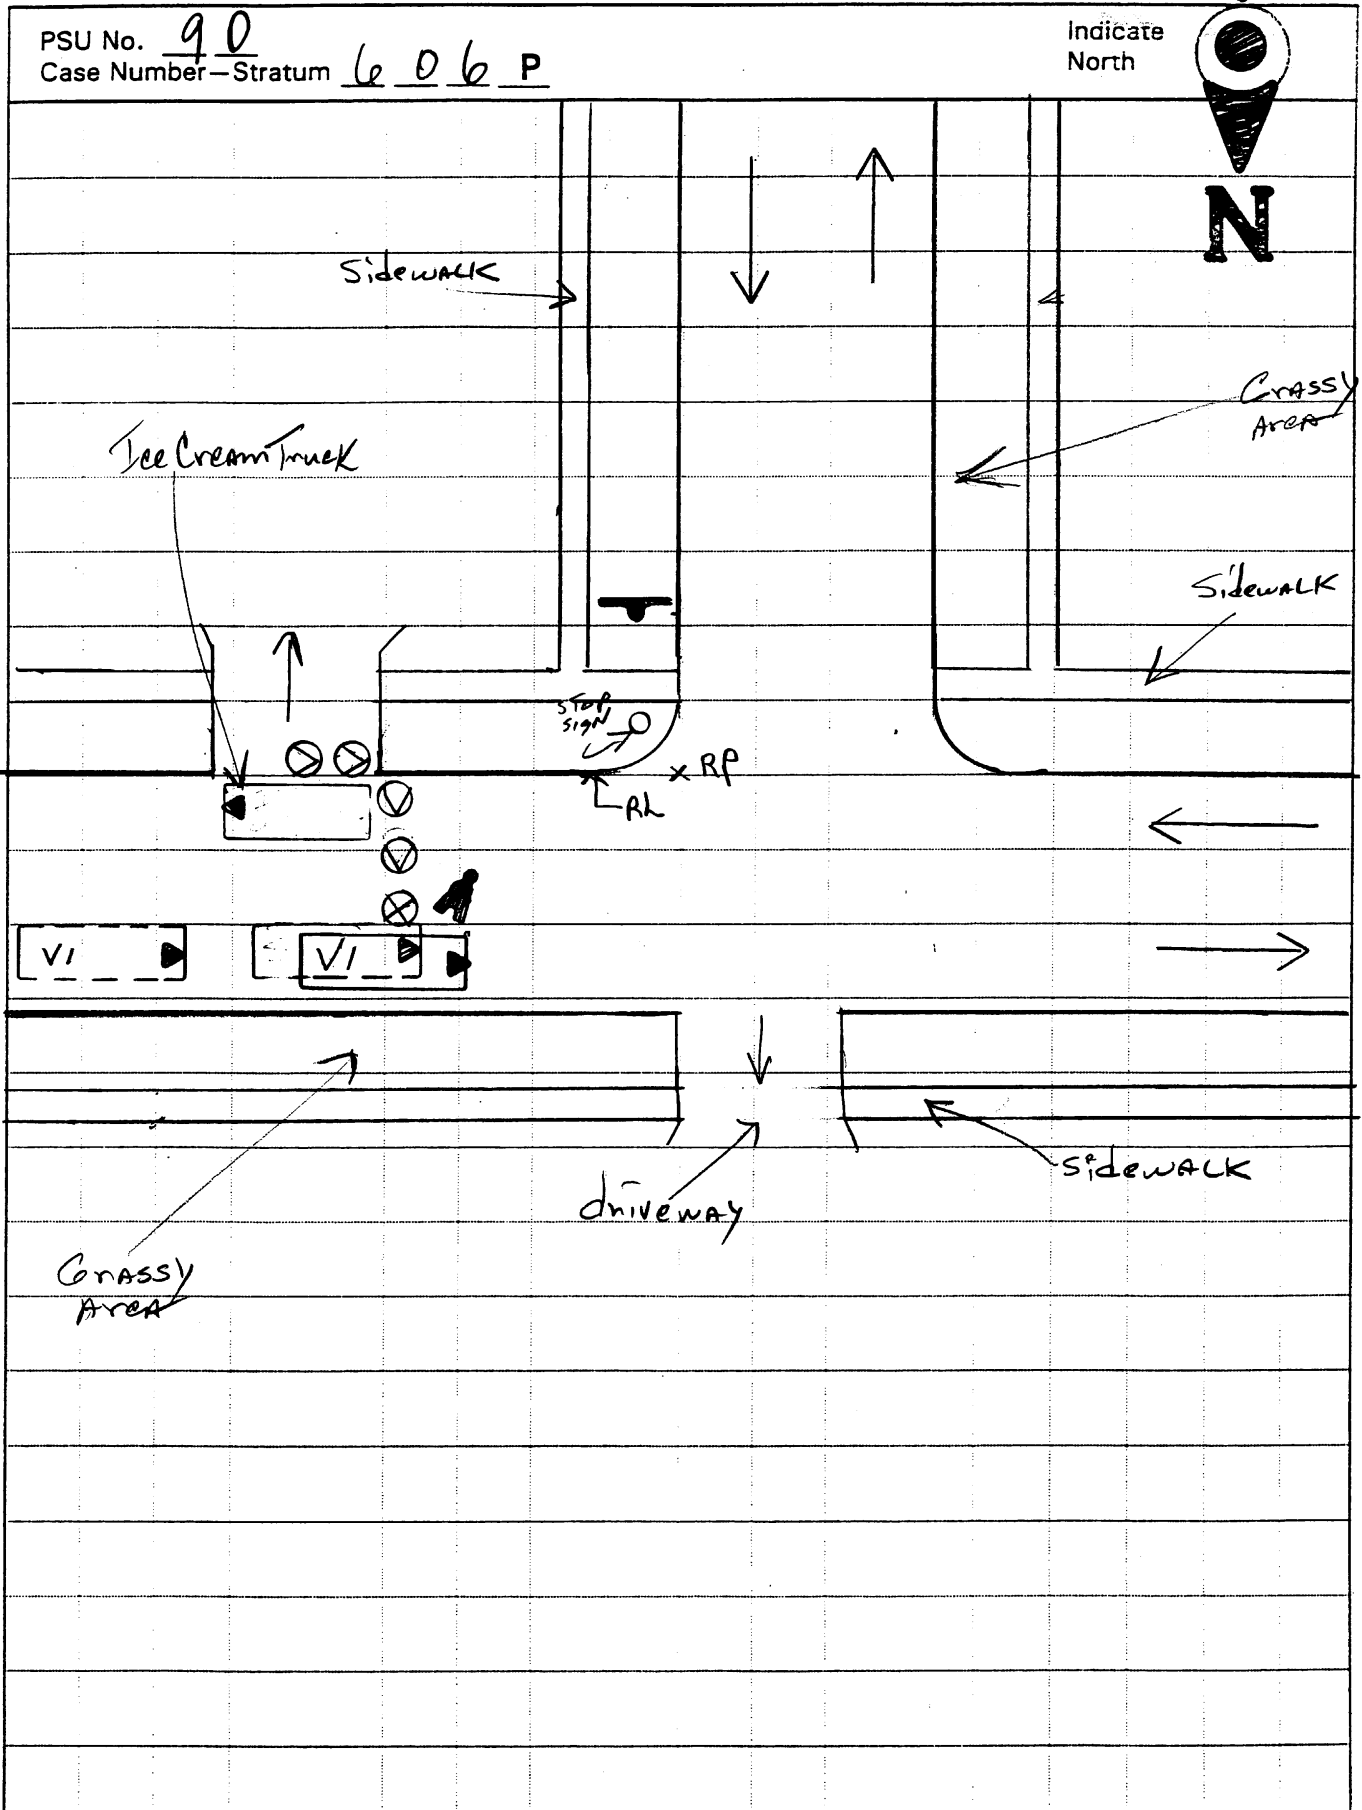 PSU No. 90
Case Number-Stratum 606 P
Indicate
North
N
Sidewalk
Grassy
Area
Ice Cream Truck
Sidewalk
STOP
SIGN
x RP
RL
V1
V1
Sidewalk
driveway
Grassy
Area